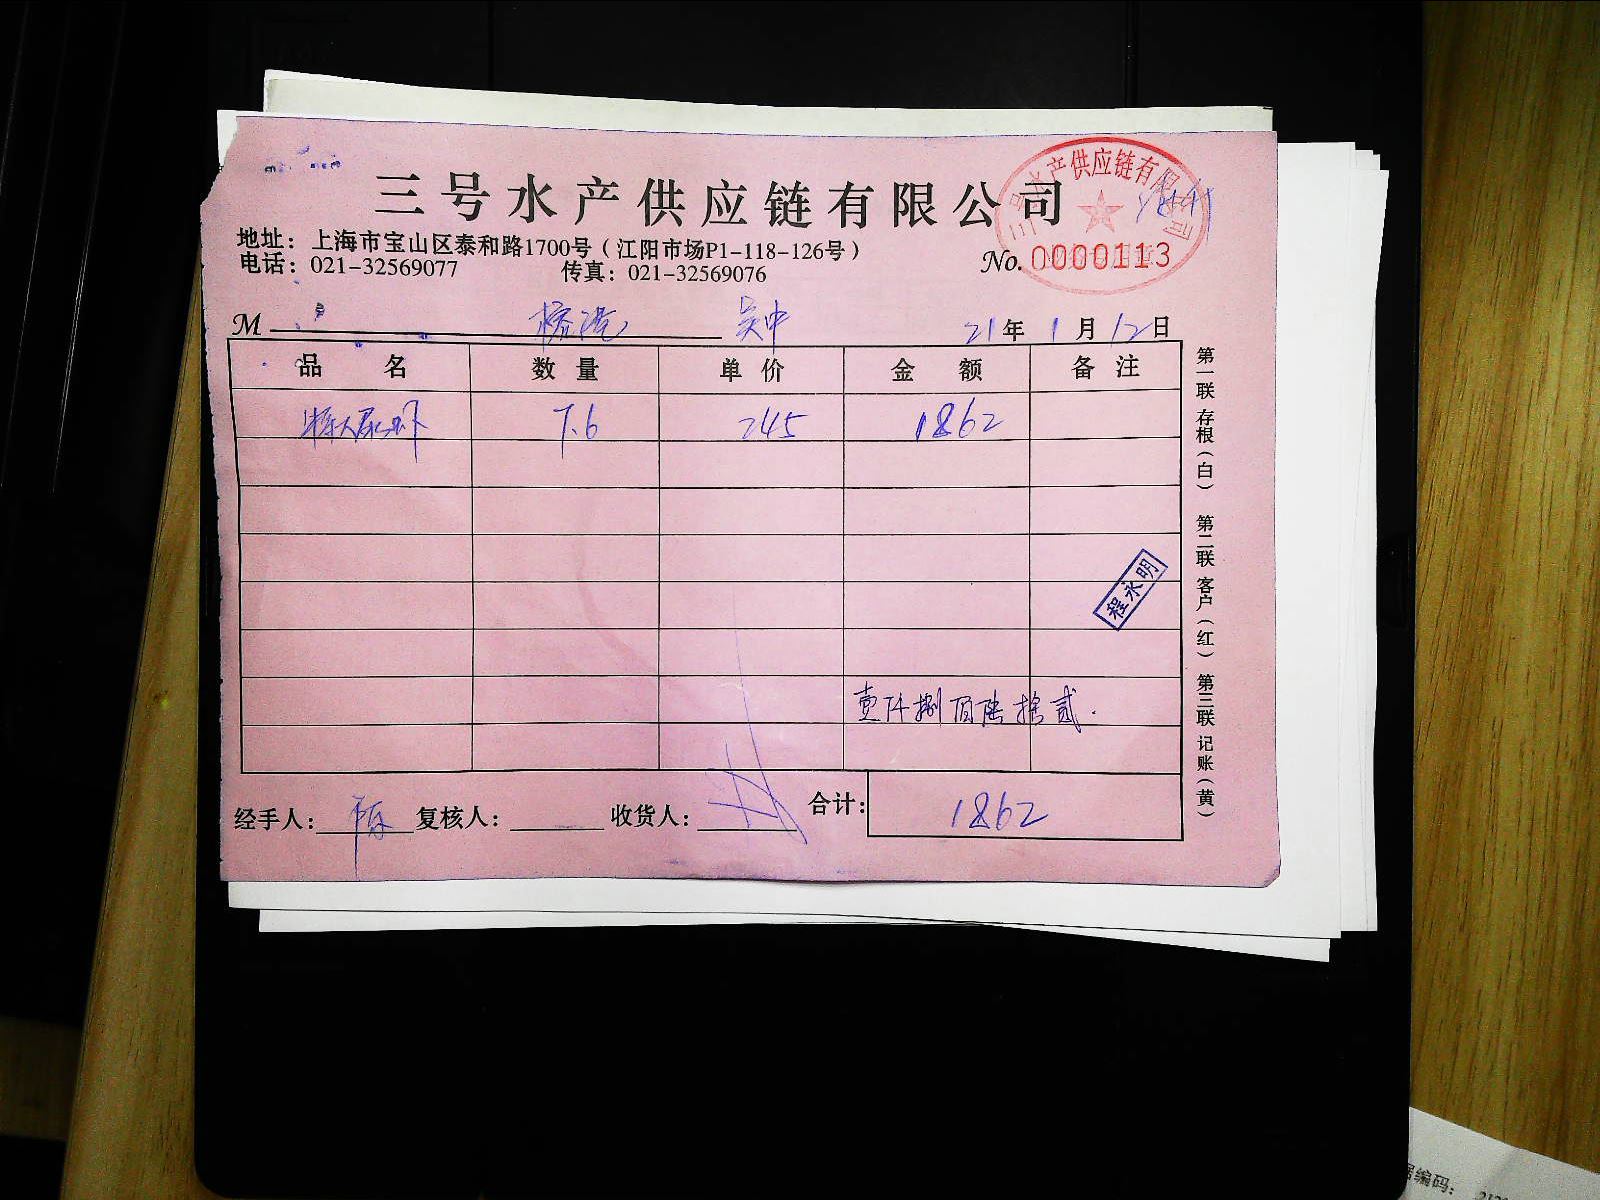 三号水产供应链有限公司
三号水产供应链有限公司
地址：上海市宝山区泰和路1700号（江阳市场P1-118-126号）
电话：021-32569077 传真：021-32569076
No. 0000113
M 吴中 21年1月12日
品名 数量 单价 金额 备注
7.6 245 1862
程永明
壹仟捌佰陆拾贰.
经手人： 复核人： 收货人： 合计： 1862
第一联 存根（白） 第二联 客户（红） 第三联 记账（黄）
据编码：